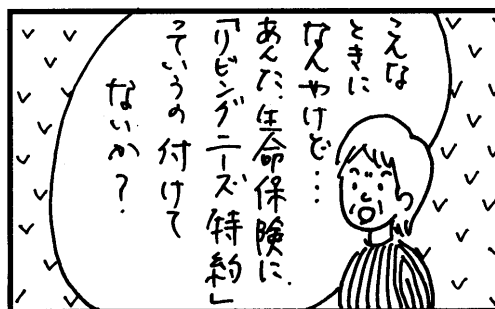 こんな
ときに
なんやけど…
あんた、生命保険に、
「リビングニーズ特約」
っていうの付けて
ないか？